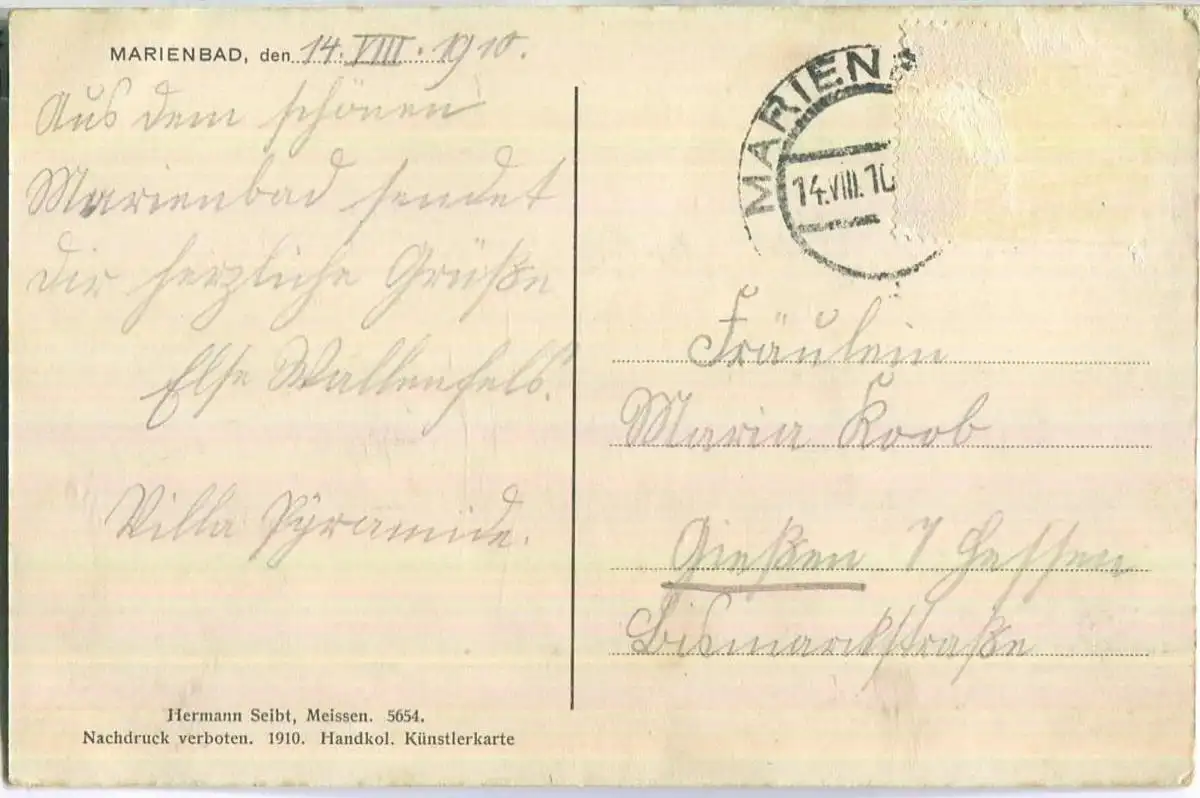 MARIENBAD, den 14. VIII. 1910.
Aus dem schönen
Marienbad sendet
dir herzliche Grüße
Else Wallenfels.
Villa Pyramide.
Hermann Seibt, Meissen. 5654.
Nachdruck verboten. 1910. Handkol. Künstlerkarte
MARIEN
14.VIII.10
Fräulein
Maria Koob
Gießen / Hessen
Bismarckstraße